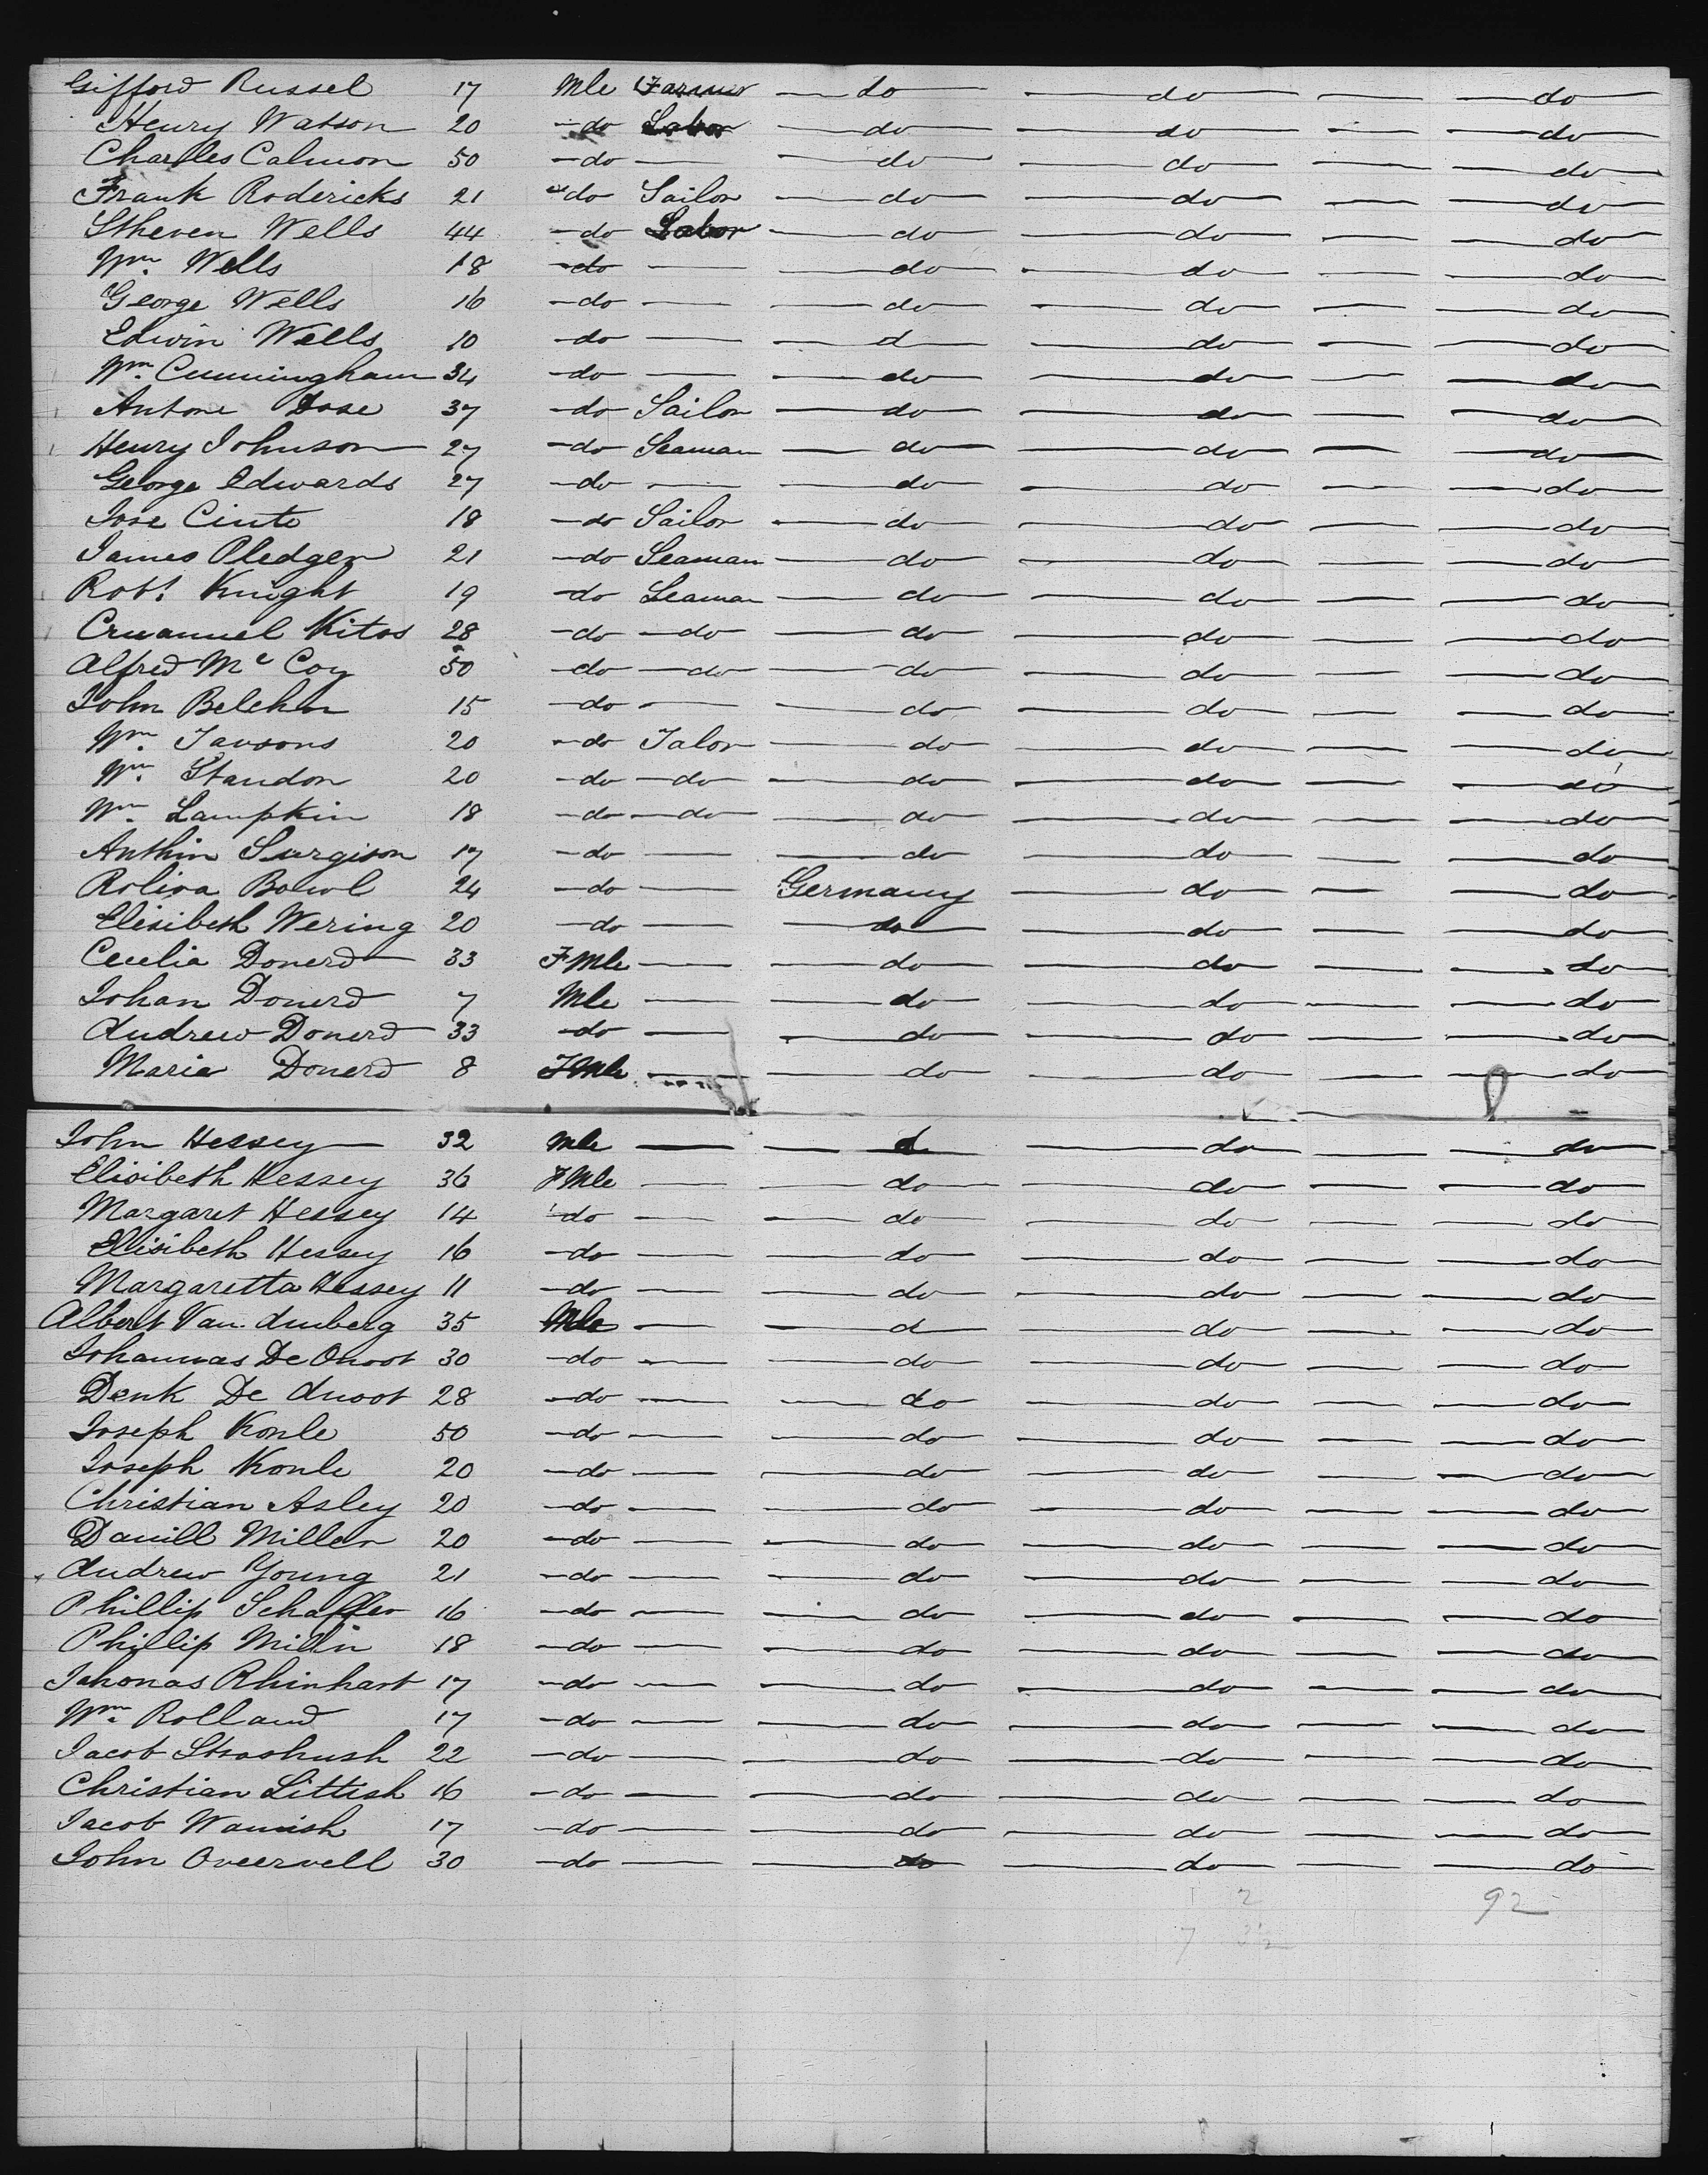 Gifford Russel 17 Mle Farmer — do — do — — do
Henry Watson 20 — do Labor — do — do — — do
Charles Calmon 50 — do — — do — do — — do
Frank Rodericks 21 — do Sailor — do — do — — do
Stheven Wells 44 — do Labor — do — do — — do
Wm. Wells 18 — do — — do — do — — do
George Wells 16 — do — — do — do — — do
Edwin Wells 10 — do — — d — do — — do
Wm. Cunningham 34 — do — — do — do — — do
Antone Dose 37 — do Sailor — do — do — — do
Henry Johnson 27 — do Seaman — do — do — — do
George Edwards 27 — do — — do — do — — do
Jose Cinto 18 — do Sailor — do — do — — do
James Pledger 21 — do Seaman — do — do — — do
Robt. Knight 19 — do Seaman — do — do — — do
Kitos 28 — do — do — do — do — — do
Alfred Mc Coy 50 — do — do — do — do — — do
John Belcher 15 — do — — do — do — — do
Wm. Jansons 20 — do Talor — do — do — — do
Wm. Standon 20 — do — do — do — do — — do
Wm. Lampkin 18 — do — do — do — do — — do
Anthin Surgison 17 — do — — do — do — — do
Roliva Bowl 24 — do — Germany — do — — do
Elisibeth Wering 20 — do — — do — do — — do
Cecelia Donerd 33 FMle — — do — do — — do
Johan Donerd 7 Mle — — do — do — — do
Andrew Donerd 33 — do — — do — do — — do
Maria Donerd 8 FMle — — do — do — — do
John Hessey 32 Mle — — d — do — — do
Elisibeth Hessey 36 FMle — — do — do — — do
Margaret Hessey 14 — do — — do — do — — do
Elisibeth Hessey 16 — do — — do — do — — do
Margaretta Hessey 11 — do — — do — do — — do
Albert Van 35 Mle — — d — do — — do
Johannas De Onoot 30 — do — — do — do — — do
Denk De Anoot 28 — do — — do — do — — do
Joseph Konle 50 — do — — do — do — — do
Joseph Konle 20 — do — — do — do — — do
Christian Asley 20 — do — — do — do — — do
Danill Miller 20 — do — — do — do — — do
Andrew Young 21 — do — — do — do — — do
Phillip Schaffer 16 — do — — do — do — — do
Phillip Miller 18 — do — — do — do — — do
Jahonas Rhinhart 17 — do — — do — do — — do
Wm. Rolland 17 — do — — do — do — — do
Jacob Strashush 22 — do — — do — do — — do
Christian Littish 16 — do — — do — do — — do
Jacob Wamish 17 — do — — do — do — — do
John Oveervell 30 — do — — do — do — — do
2 92
7 3½